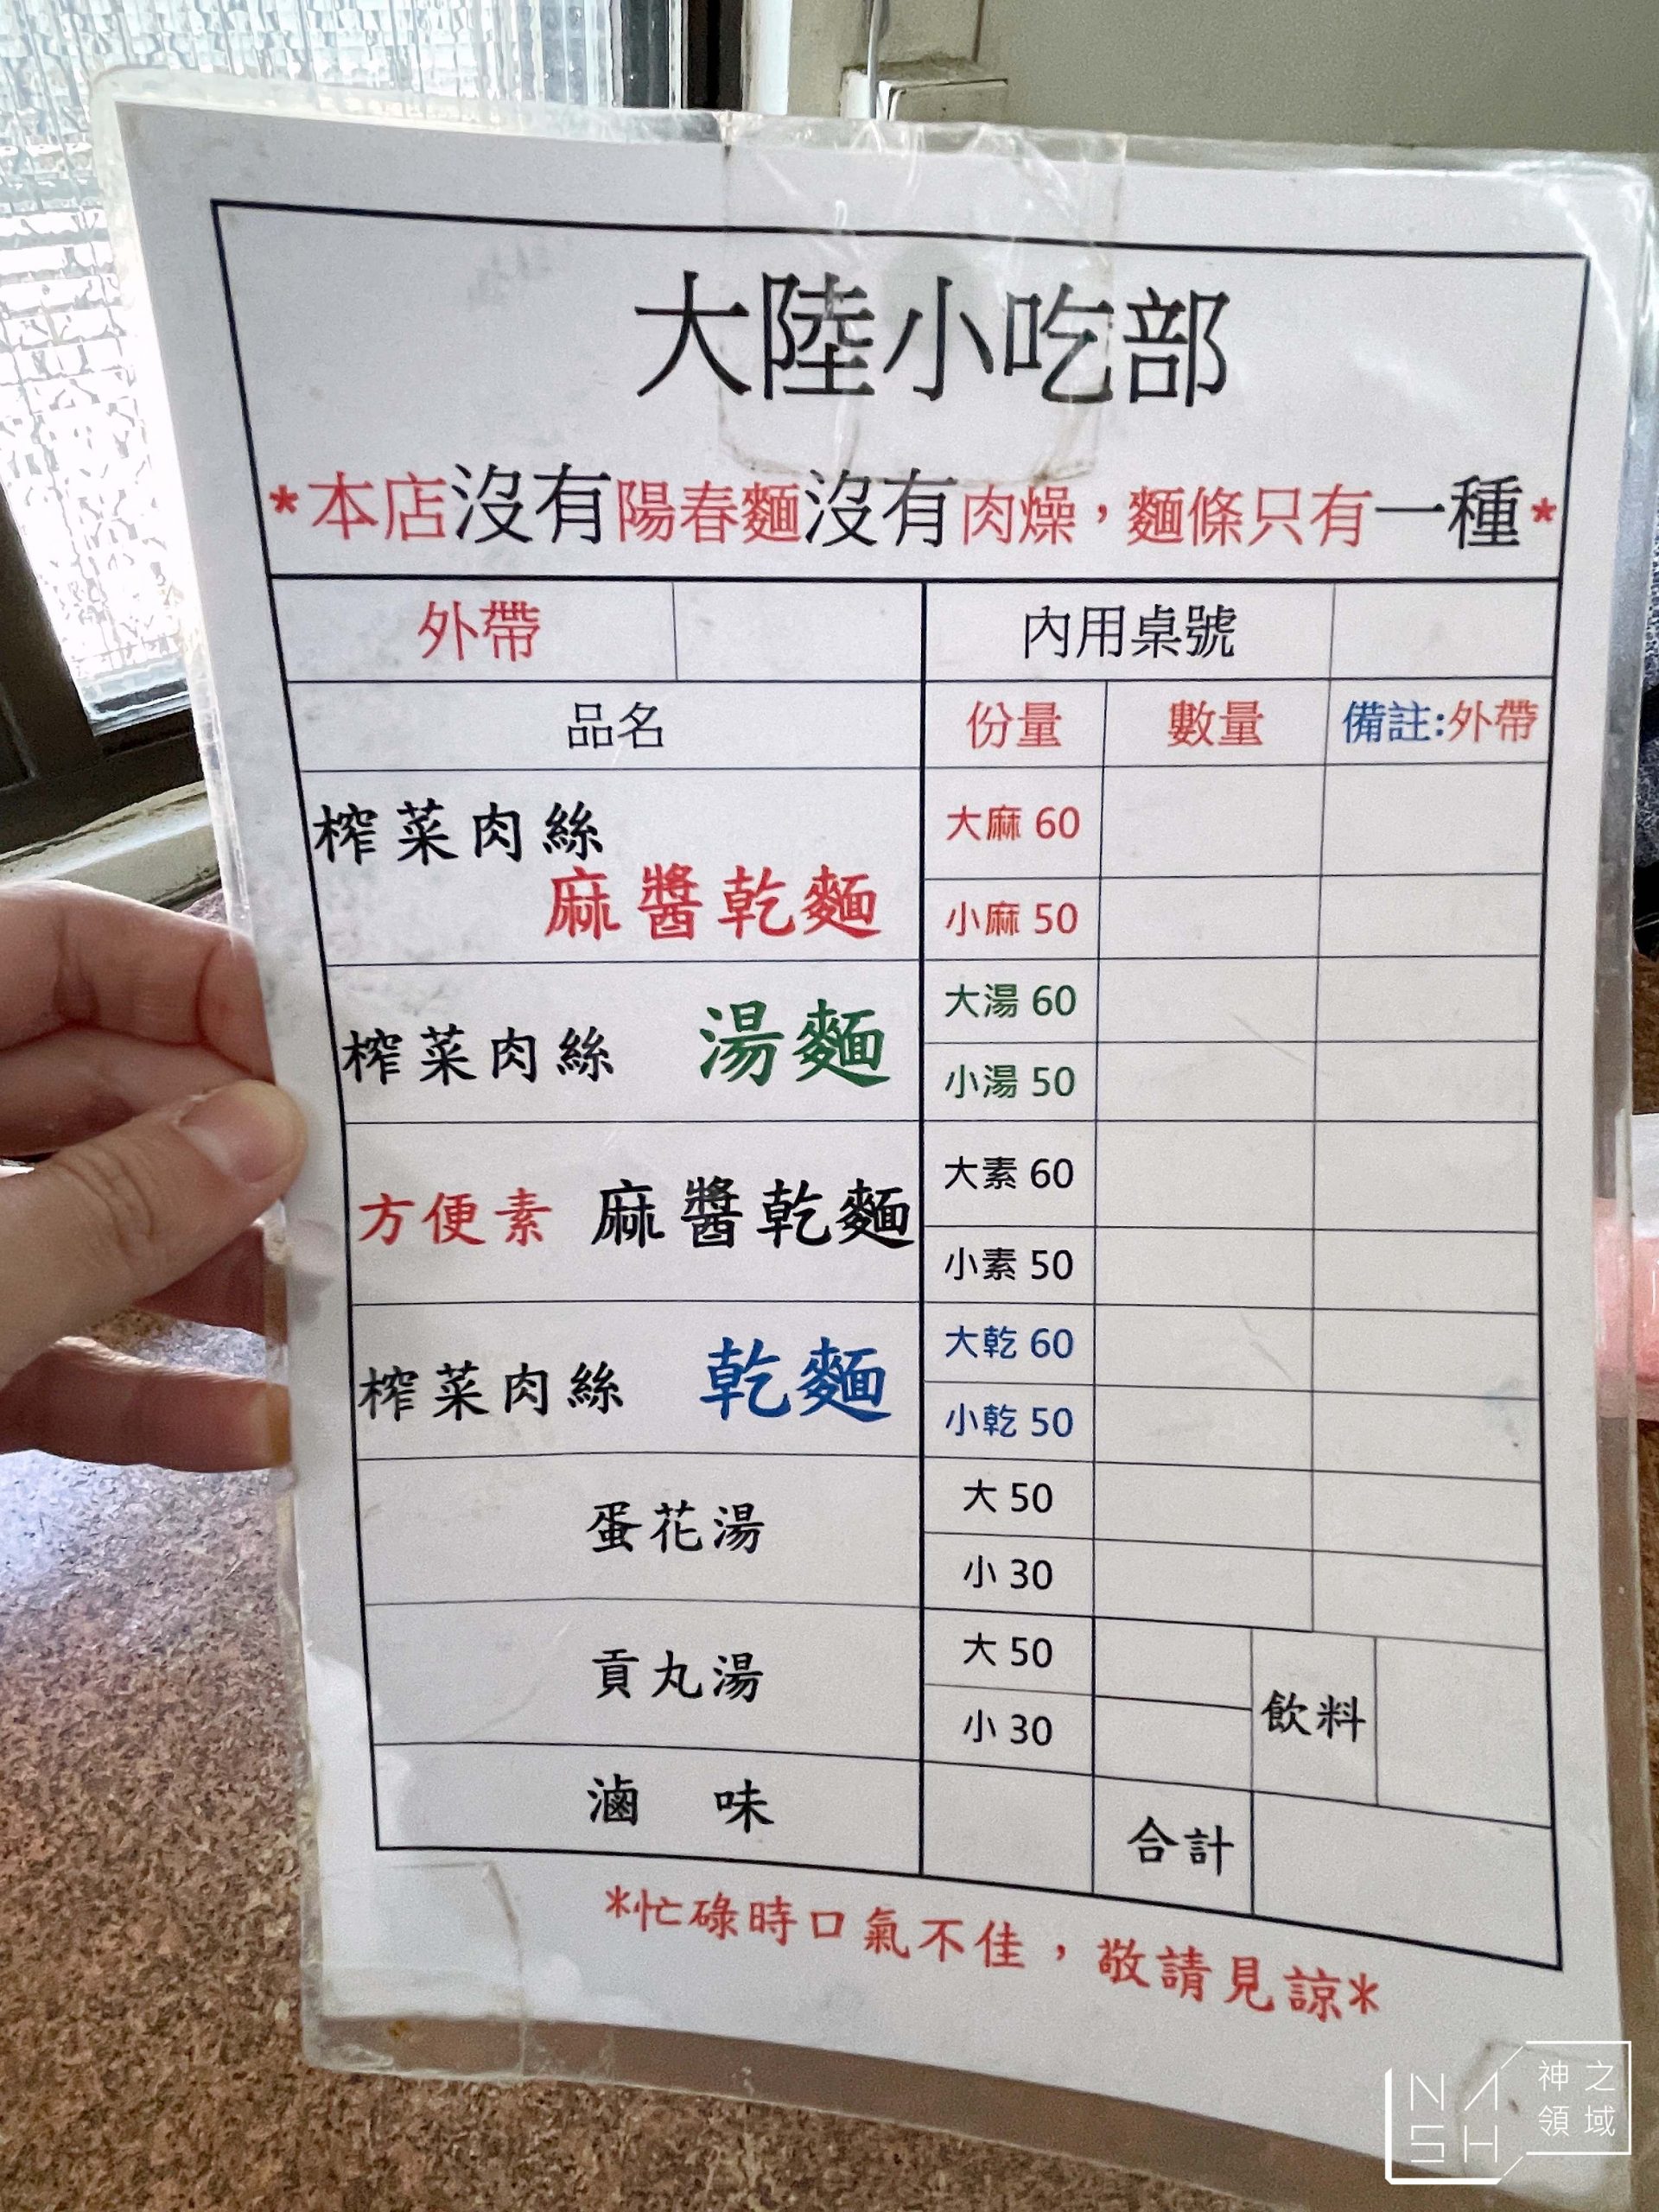 大陸小吃部
*本店沒有陽春麵沒有肉燥，麵條只有一種*
外帶 內用桌號
品名 份量 數量 備註:外帶
榨菜肉絲 大麻 60
麻醬乾麵 小麻 50
榨菜肉絲 湯麵 大湯 60
小湯 50
方便素 麻醬乾麵 大素 60
小素 50
榨菜肉絲 乾麵 大乾 60
小乾 50
蛋花湯 大 50
小 30
貢丸湯 大 50
小 30
飲料
滷味
合計
*忙碌時口氣不佳，敬請見諒*
NASH
神之
領域